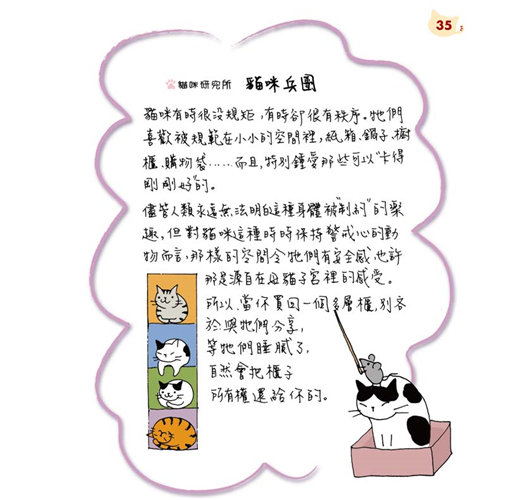 35
貓咪研究所 貓咪兵團
貓咪有時很沒規矩,有時卻很有秩序。牠們
喜歡被規範在小小的空間裡,紙箱、鍋子、櫥
櫃、購物袋……而且,特別鍾愛那些可以“卡得
剛剛好”的。
儘管人類永遠無法明白這種身體被“制約”的樂
趣,但對貓咪這種時時保持警戒心的動
物而言,那樣的空間令牠們有安全感,也許
那是源自在母貓子宮裡的感受。
所以,當你買回一個多層櫃,別吝
於與牠們分享,
等牠們睡膩了,
自然會把櫃子
所有權還給你的。